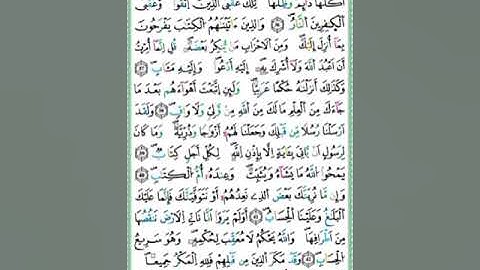 أُكُلُهَا دَآئِمٞ وَظِلُّهَاۚ تِلۡكَ عُقۡبَى ٱلَّذِينَ ٱتَّقَواْۚ وَّعُقۡبَى
ٱلۡكَٰفِرِينَ ٱلنَّارُۖ وَٱلَّذِينَ ءَاتَيۡنَٰهُمُ ٱلۡكِتَٰبَ يَفۡرَحُونَ
بِمَآ أُنزِلَ إِلَيۡكَۖ وَمِنَ ٱلۡأَحۡزَابِ مَن يُنكِرُ بَعۡضَهُۥۚ قُلۡ إِنَّمَآ أُمِرۡتُ
أَنۡ أَعۡبُدَ ٱللَّهَ وَلَآ أُشۡرِكَ بِهِۦٓۚ إِلَيۡهِ أَدۡعُواْ وَإِلَيۡهِ مَـَٔابِۖ
وَكَذَٰلِكَ أَنزَلۡنَٰهُ حُكۡمًا عَرَبِيّٗاۚ وَلَئِنِ ٱتَّبَعۡتَ أَهۡوَآءَهُم بَعۡدَ مَا
جَآءَكَ مِنَ ٱلۡعِلۡمِ مَا لَكَ مِنَ ٱللَّهِ مِنۡ وَلِيّٖ وَلَا وَاقٖۖ وَلَقَدۡ
أَرۡسَلۡنَا رُسُلٗا مِّن قَبۡلِكَ وَجَعَلۡنَا لَهُمۡ أَزۡوَٰجٗا وَذُرِّيَّةٗۖ وَمَا كَانَ
لِرَسُولٍ أَن يَأۡتِيَ بِـَٔايَةٍ إِلَّا بِإِذۡنِ ٱللَّهِۖ لِكُلِّ أَجَلٖ كِتَابٞۖ
يَمۡحُواْ ٱللَّهُ مَا يَشَآءُ وَيُثَبِّتُۖ وَعِندَهُۥٓ أُمُّ ٱلۡكِتَٰبِۖ
وَإِن مَّا نُرِيَنَّكَ بَعۡضَ ٱلَّذِي نَعِدُهُمۡ أَوۡ نَتَوَفَّيَنَّكَ فَإِنَّمَا عَلَيۡكَ
ٱلۡبَلَٰغُ وَعَلَيۡنَا ٱلۡحِسَابُۖ أَوَلَمۡ يَرَوۡاْ أَنَّا نَأۡتِي ٱلۡأَرۡضَ نَنقُصُهَا
مِنۡ أَطۡرَافِهَاۚ وَٱللَّهُ يَحۡكُمُ لَا مُعَقِّبَ لِحُكۡمِهِۦۚ وَهُوَ سَرِيعُ
ٱلۡحِسَابِۖ وَقَدۡ مَكَرَ ٱلَّذِينَ مِن قَبۡلِهِمۡ فَلِلَّهِ ٱلۡمَكۡرُ جَمِيعٗاۖ